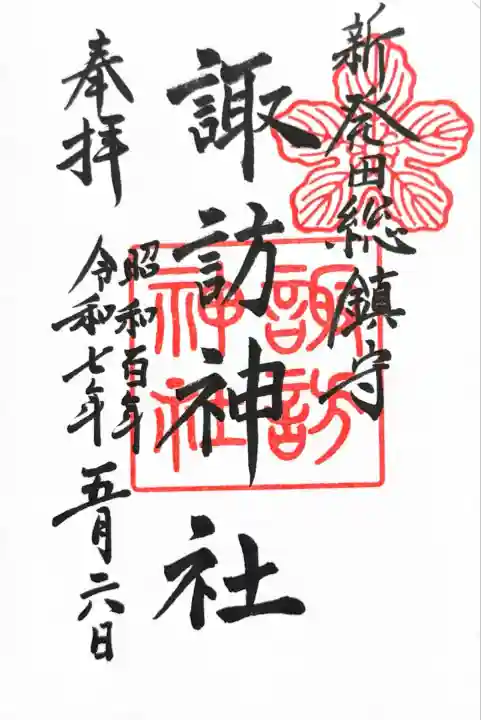 新発田総鎮守
諏訪神社
諏訪
神社
奉拝
昭和百年
令和七年
五月六日